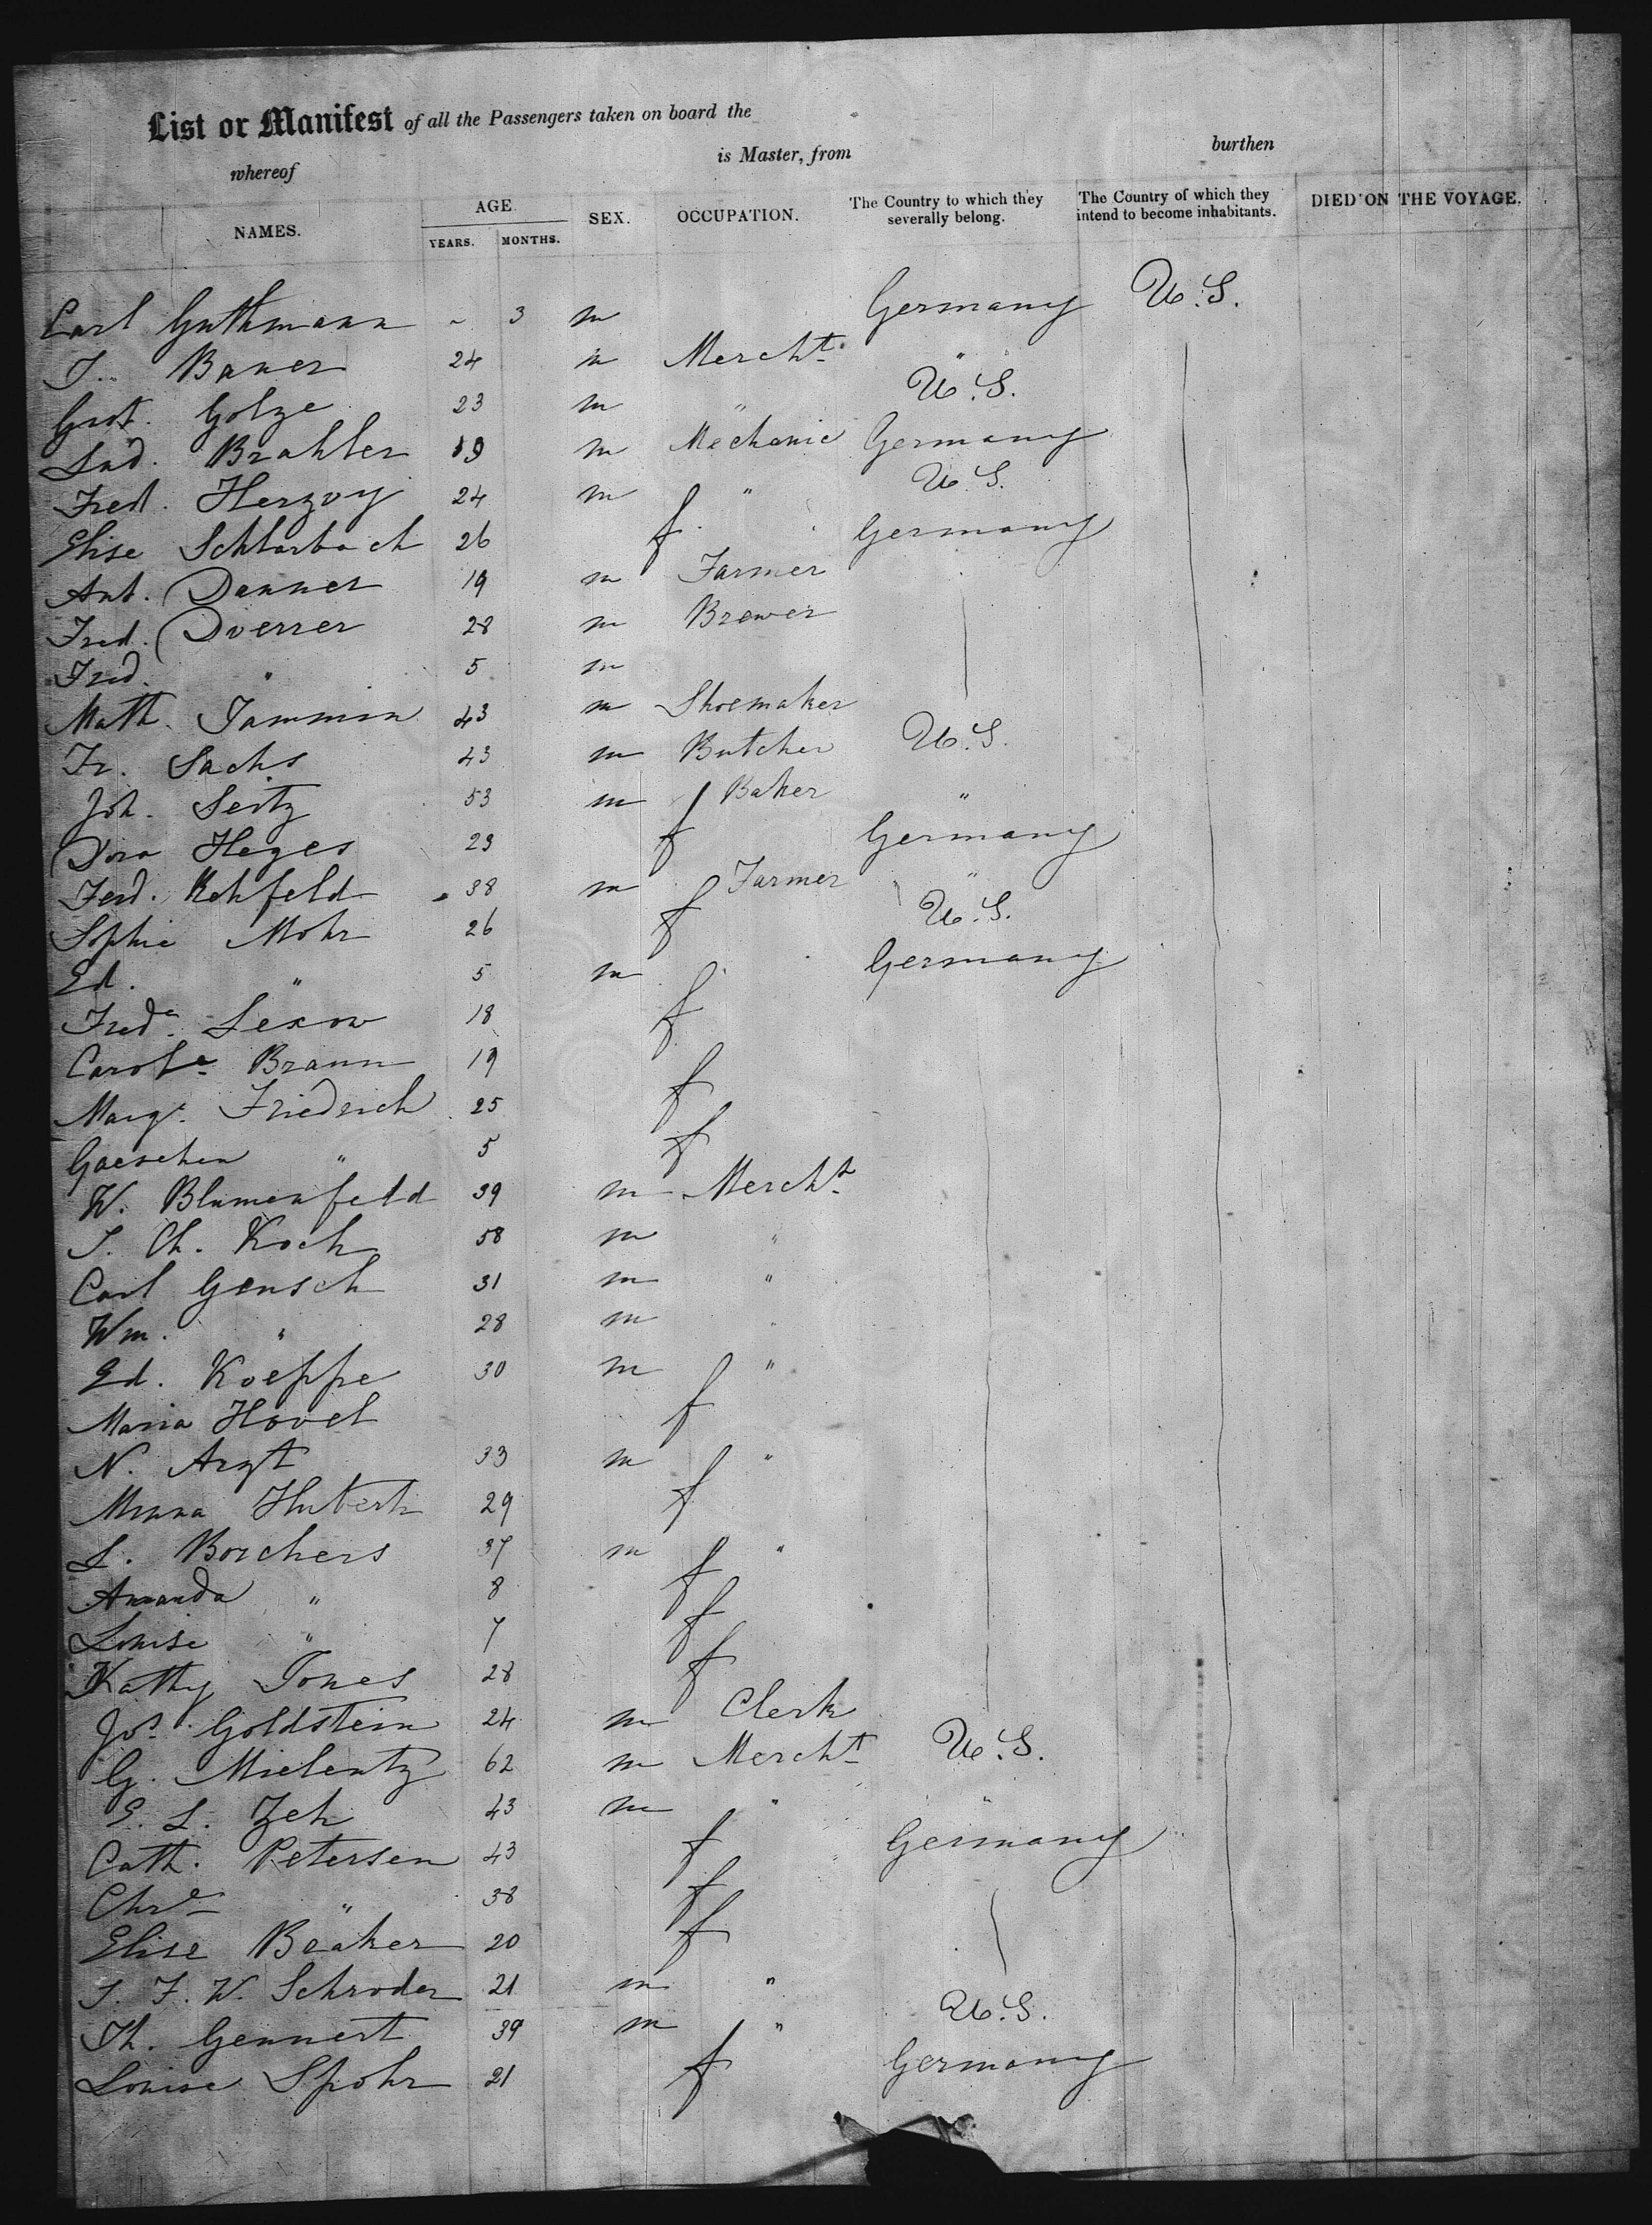 List or Manifest of all the Passengers taken on board the
whereof is Master, from burthen
NAMES. AGE. YEARS. MONTHS. SEX. OCCUPATION. The Country to which they severally belong. The Country of which they intend to become inhabitants. DIED ON THE VOYAGE.
Carl Guthmann - 3 m Germany U.S.
J. Bauer 24 m Mercht. "
Gust. Golze 23 m " U.S.
Lud. Brahler 19 m Mechanic Germany
Fred. Herzog 24 m " U.S.
Elise Schlarbach 26 f Germany
Ant. Danner 19 m Farmer
Fred. Doerrer 28 m Brewer
Fred. " 5 m
Math. Jammin 43 m Shoemaker
Fr. Sachs 43 m Butcher U.S.
Joh. Seitz 53 m Baker "
Dora Heges 23 f Germany
Ferd. Kohfeld 38 m Farmer "
Sophie Mohr 26 f U.S.
Ed. " 5 m Germany
Frede. Lexow 18 f
Carole. Braun 19 f
Marge. Friedrich 25 f
" 5 f
W. Blumenfeld 39 m Mercht.
J. Ch. Koch 58 m "
Carl Gensch 31 m "
Wm. " 28 m "
Ed. Koeppe 30 m "
Maria Hovel f
N. Arzt 33 m "
Minna Huberti 29 f
L. Borchers 37 m "
Amanda " 8 f
Louise " 7 f
Kathy Jones 28 f
Jos. Goldstein 24 m Clerk
G. Mielentz 62 m Mercht. U.S.
E. L. Zeh 43 m " "
Cath. Petersen 43 f Germany
Chre. " 38 f
Elise Braker 20 f
J. F. W. Schroder 21 m "
Th. Gennert 39 m " U.S.
Louise Spohr 21 f Germany